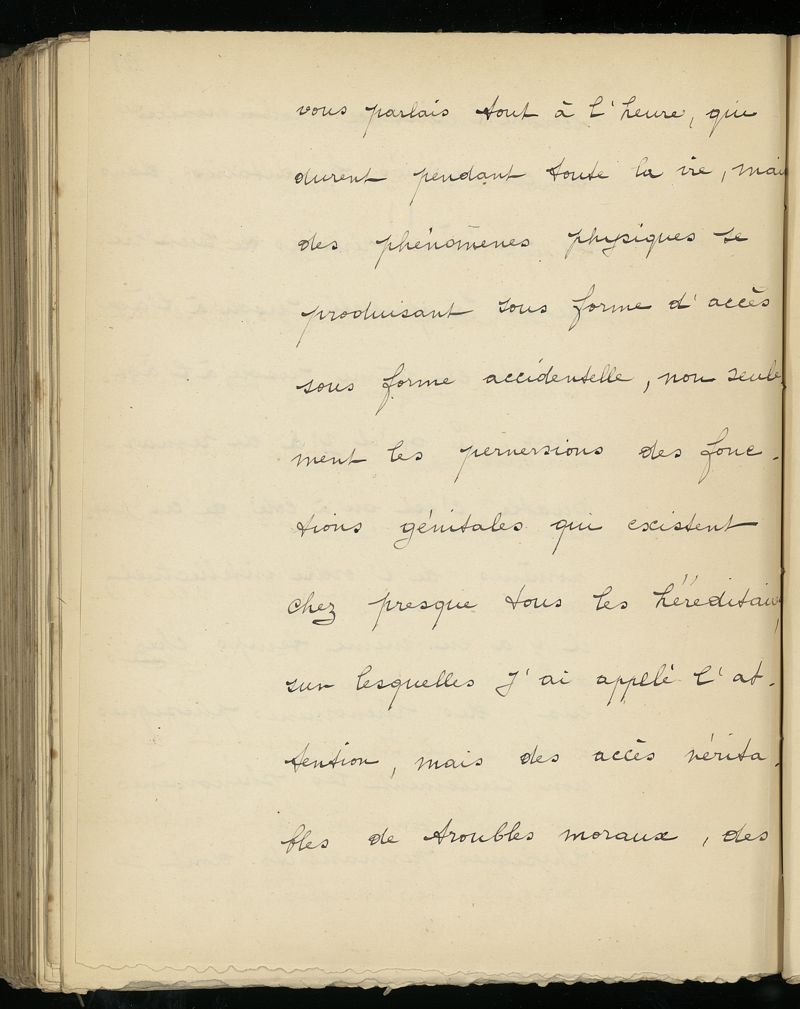 vous parlais tout à l'heure, qui
durent pendant toute la vie, mais
des phénomènes physiques se
produisant sous forme d'accès
sous forme accidentelle, non seule
ment les perversions des fonc-
tions génitales qui existent
chez presque tous les héréditaires
sur lesquelles j'ai appelé l'at-
tention, mais des accès vérita-
bles de troubles moraux, des